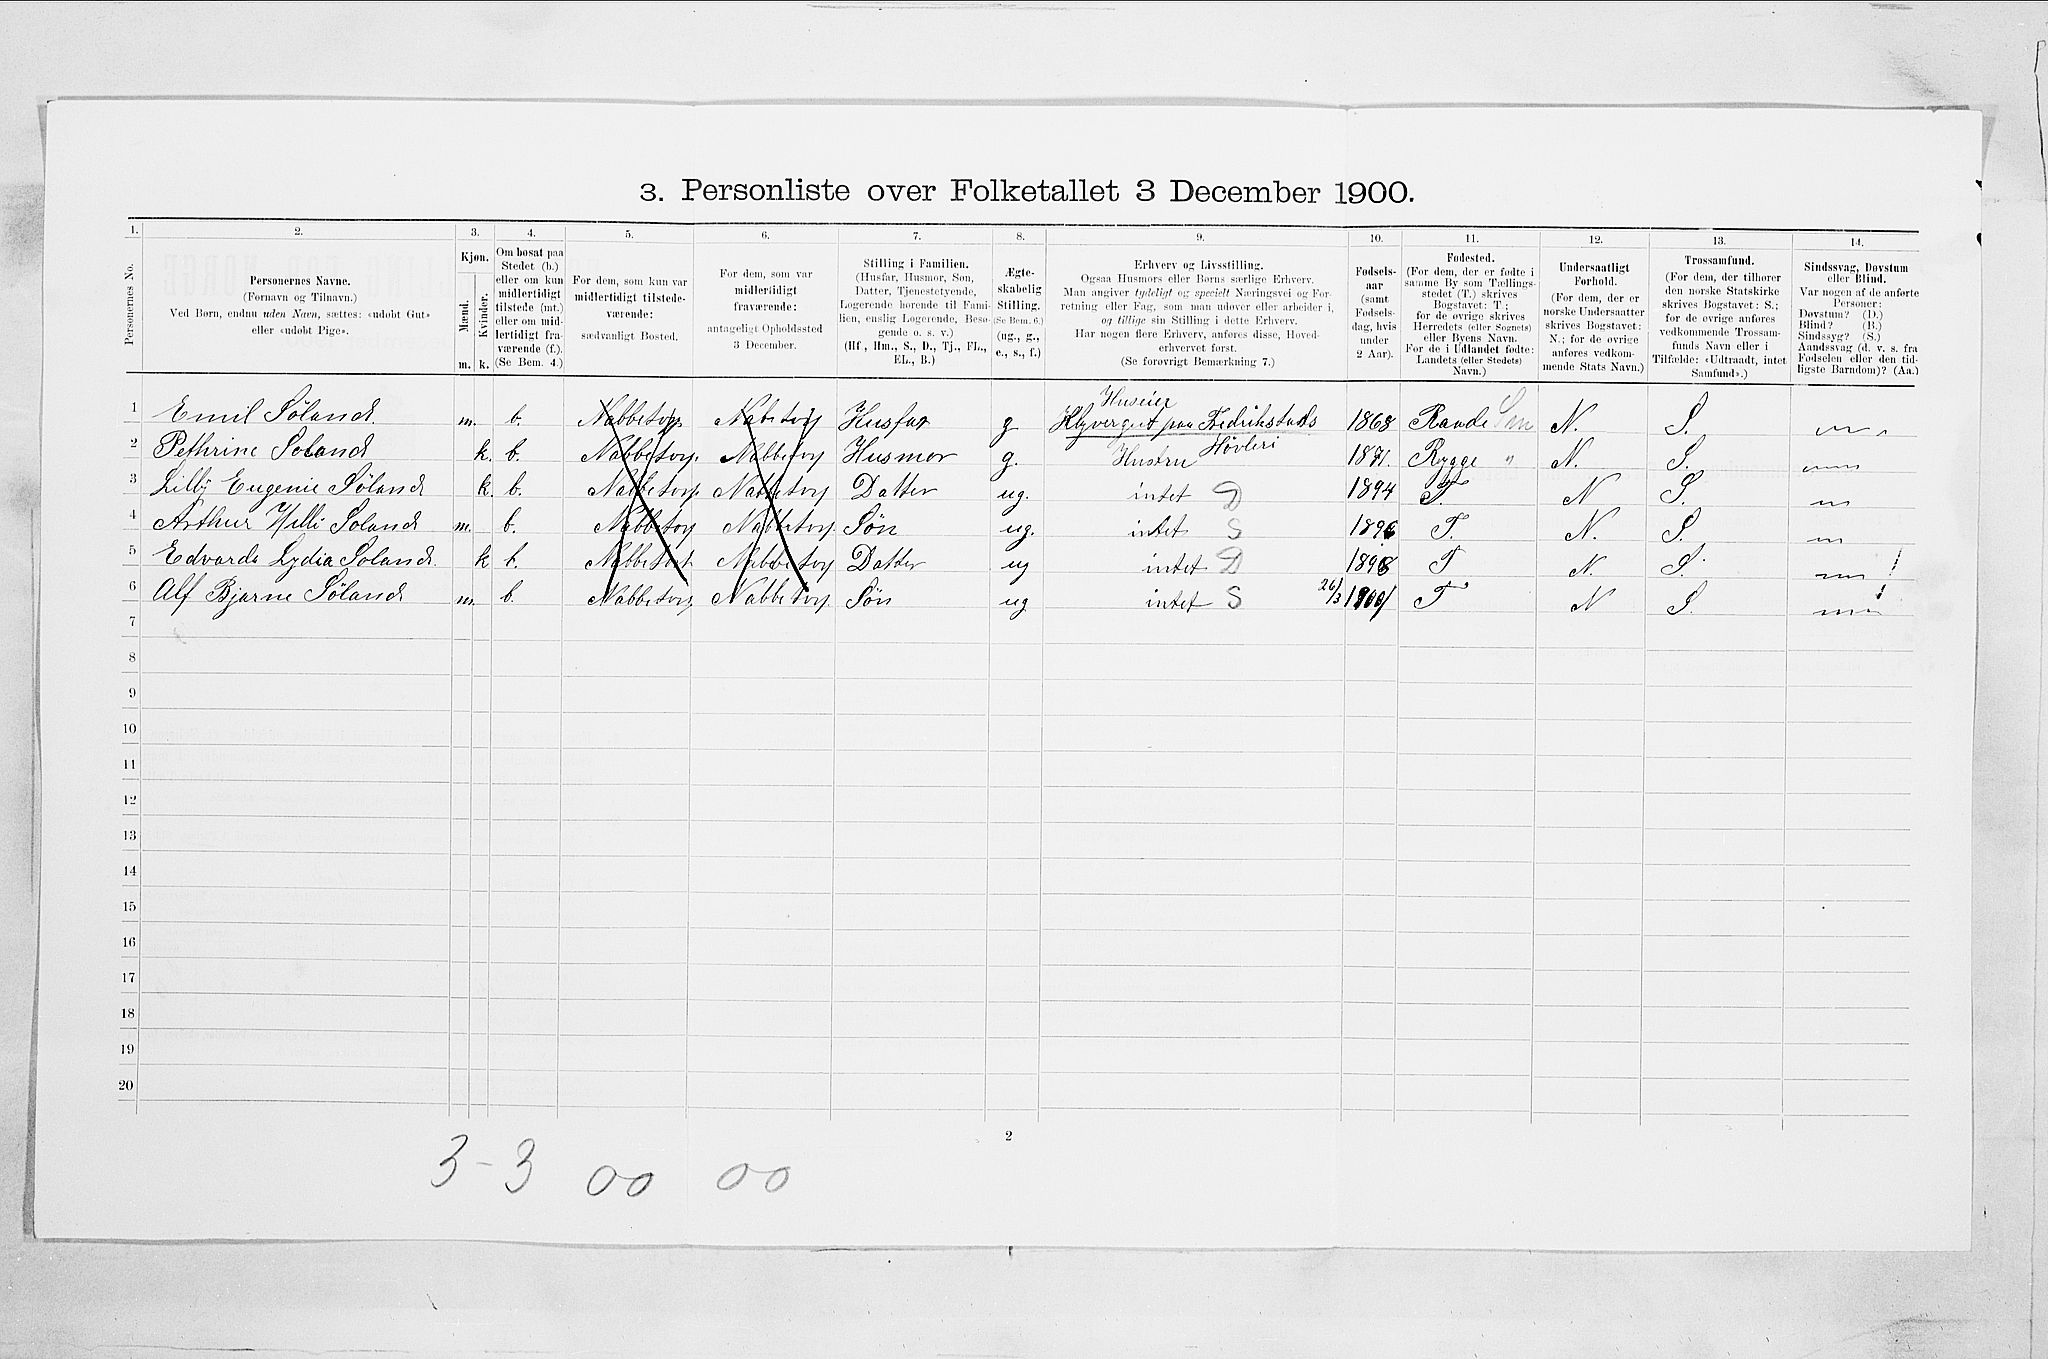 3. Personliste over Folketallet 3 December 1900.
1. 2. 3. 4. 5. 6. 7. 8. 9. 10. 11. 12. 13. 14.
Personernes No.
Personernes Navne.
(Fornavn og Tilnavn.)
Ved Børn, endnu uden Navn, sættes: «udøbt Gut»
eller «udøbt Pige».
Kjøn.
Mænd.
Kvinder.
m. k.
Om bosat paa
Stedet (b.)
eller om kun
midlertidigt
tilstede (mt.)
eller om mid-
lertidigt fra-
værende (f.).
(Se Bem. 4.)
For dem, som kun var
midlertidigt tilstede-
værende:
sædvanligt Bosted.
For dem, som var
midlertidigt
fraværende:
antageligt Opholdssted
3 December.
Stilling i Familien.
(Husfar, Husmor, Søn,
Datter, Tjenestetyende,
Logerende hørende til Fami-
lien, enslig Logerende, Besø-
gende o. s. v.)
(Hf., Hm., S., D., Tj., FL.,
EL., B.)
Ægte-
skabelig
Stilling.
(Se Bem. 6.)
(ug., g.,
e., s., f.)
Erhverv og Livsstilling.
Ogsaa Husmors eller Børns særlige Erhverv.
Man angiver tydeligt og specielt Næringsvei og For-
retning eller Fag, som man udøver eller arbeider i,
og tillige sin Stilling i dette Erhverv.
Har nogen flere Erhverv, anføres disse, Hoved-
erhvervet først.
(Se forøvrigt Bemærkning 7.)
Fødsels-
aar
(samt
Fødsels-
dag, hvis
under
2 Aar).
Fødested.
(For dem, der er fødte i
samme By som Tællings-
stedet (T.) skrives
Bogstavet: T.;
for de øvrige skrives
Herredets (eller Sognets)
eller Byens Navn.
For de i Udlandet fødte:
Landets (eller Stedets)
Navn.)
Undersaatligt
Forhold.
(For dem, der er
norske Undersaatter
skrives Bogstavet:
N.; for de øvrige
anføres vedkom-
mende Stats Navn.)
Trossamfund.
(For dem, der tilhører
den norske Statskirke
skrives Bogstavet: S.;
for de øvrige anføres
vedkommende Trossam-
funds Navn eller i
Tilfælde: «Udtraadt, intet
Samfund».)
Sindssvag, Døvstum
eller Blind.
Var nogen af de anførte
Personer:
Døvstum? (D.)
Blind? (B.)
Sindssyg? (S.)
Aandssvag (d. v. s. fra
Fødselen eller den tid-
ligste Barndom)? (Aa.)
Huseier
1 Emil Søland. m. b. Nabbetorp Nabetorp Husfar g Fredrikstads 1868 Raade Sm N. S.
Høvleri
2 Pethrine Soland k. b. Nabbetorp. Nabbetorp Husmor g. Hustru 1871. Rygge " N. S.
3 Lilly Eugenie Søland k. b. Nabbetorp. Nabbetorp Datter ug. intet D 1894 T. N S.
4 Arthur Villi Soland m. b. Nabbetorp Nabbetorp. Søn ug. intet S 1896 T. N. S.
5 Edvarda Lydia Soland. k b. Nabbetorp Nabbetorp Datter ug intet D 1898 T N. S.
6 Alf Bjarne Søland m. b. Nabbetorp Nabbetorp. Søn ug intet S 26/3 1900 T N S.
7
8
9
10
11
12
13
14
15
16
17
18
19
20
2
3-3 00 00